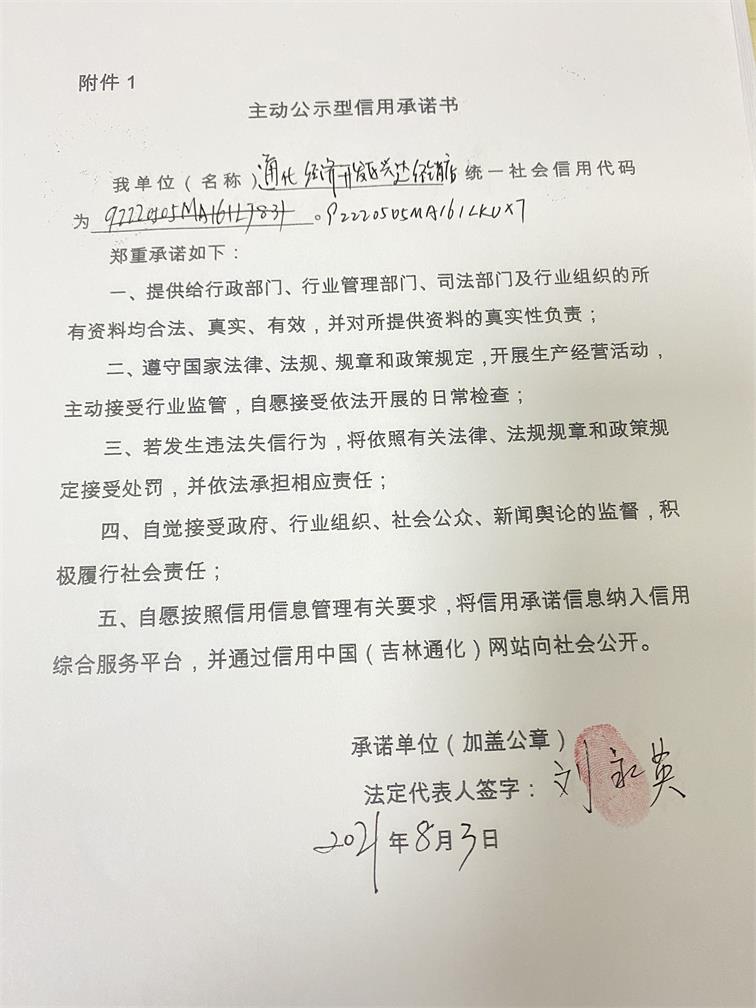 附件 1
主动公示型信用承诺书
我单位（名称）通化经济开发区兴达经销店 统一社会信用代码
为 。92220505MA161LKUX7
郑重承诺如下：
一、提供给行政部门、行业管理部门、司法部门及行业组织的所
有资料均合法、真实、有效，并对所提供资料的真实性负责；
二、遵守国家法律、法规、规章和政策规定，开展生产经营活动，
主动接受行业监管，自愿接受依法开展的日常检查；
三、若发生违法失信行为，将依照有关法律、法规规章和政策规
定接受处罚，并依法承担相应责任；
四、自觉接受政府、行业组织、社会公众、新闻舆论的监督，积
极履行社会责任；
五、自愿按照信用信息管理有关要求，将信用承诺信息纳入信用
综合服务平台，并通过信用中国（吉林通化）网站向社会公开。
承诺单位（加盖公章）
法定代表人签字：刘永英
2021年8月3日